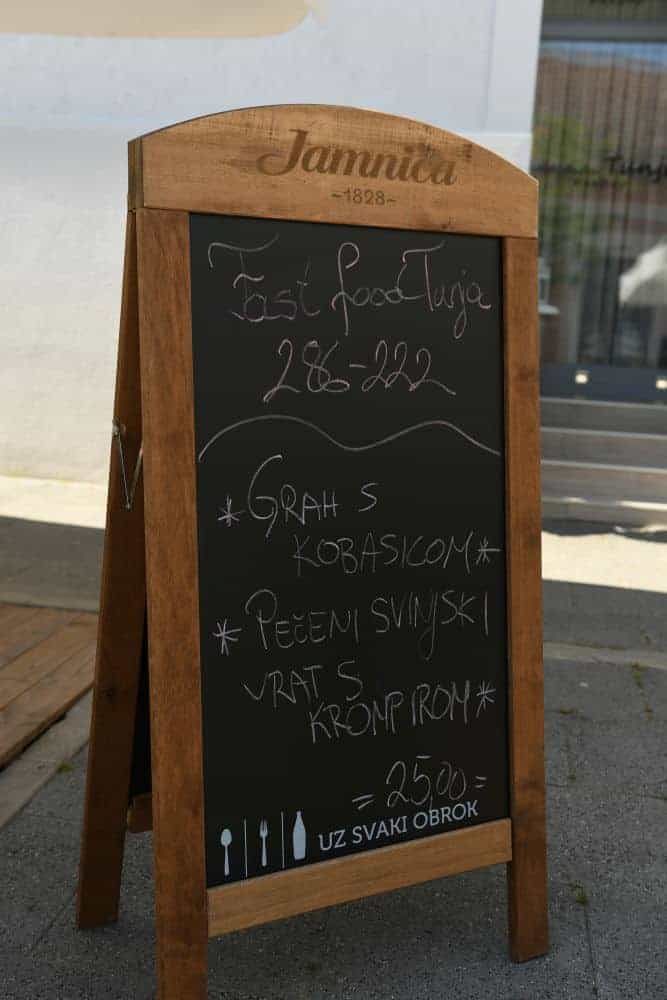 Jamnica
~1828~
Fast food Tunja
286-222
* GRAH S
KOBASICOM *
* PEČENI SVINJSKI
VRAT S
KRONPIROM *
= 25,00 =
UZ SVAKI OBROK
Tunja